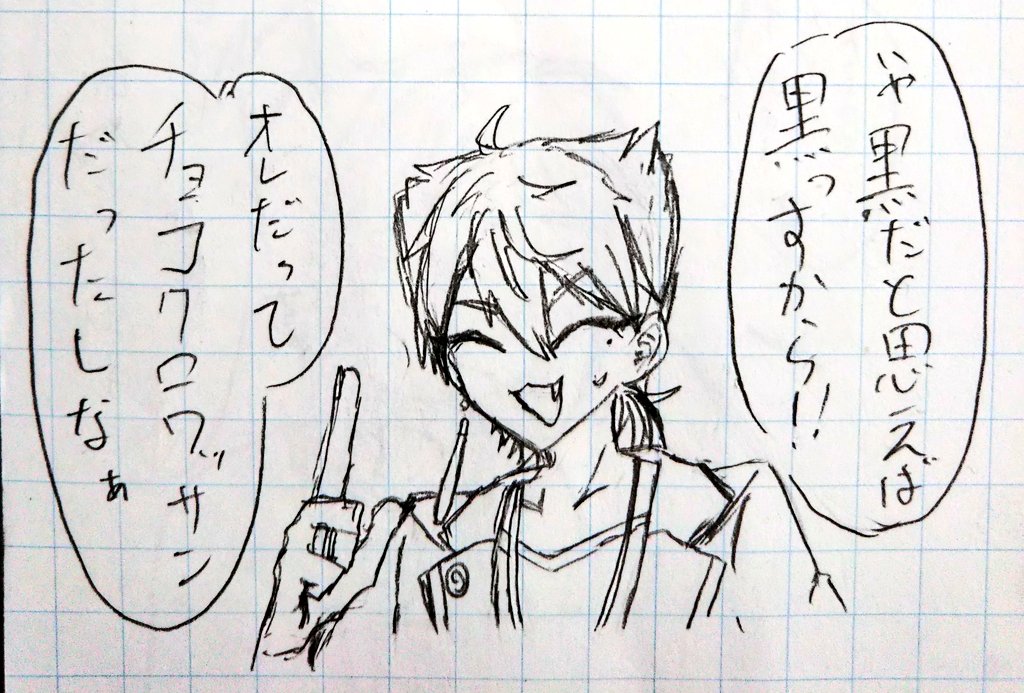 いや黒だと思えば
黒っすから!!
オレだって
チョコクロワッサン
だったしなぁ